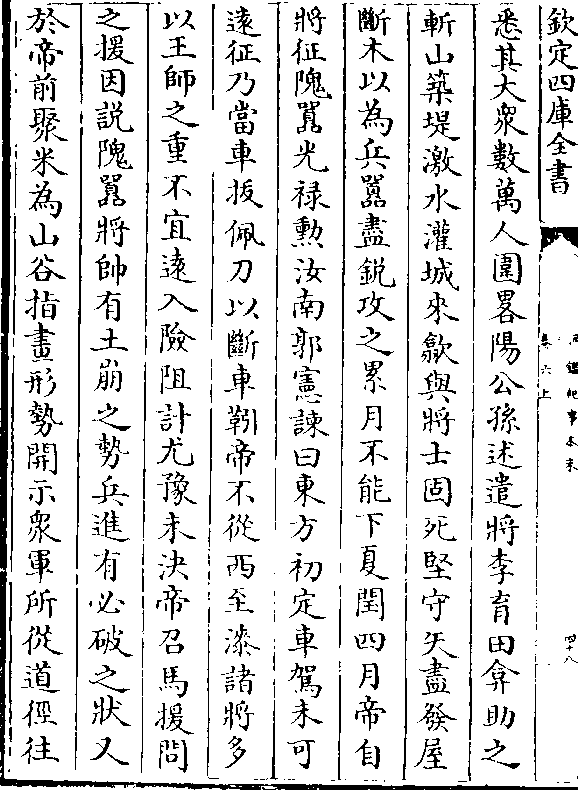 欽定四庫全書
悉其大衆數萬人圍畧陽公孫述遣將李育田弇助之
斬山築堤激水灌城來歙與將士固死堅守矢盡發屋
斷木以為兵囂盡鋭攻之累月不能下夏閏四月帝自
將征隗囂光禄勲汝南郭憲諫曰東方初定車駕未可
遠征乃當車拔佩刀以斷車靷帝不從西至漆諸將多
以王師之重不宜遠入險阻計尤豫未決帝召馬援問
之援因説隗囂將帥有土崩之勢兵進有必破之狀又
於帝前聚米為山谷指畫形勢開示衆軍所從道徑往
鑑紀事本末
卷六上
四十八